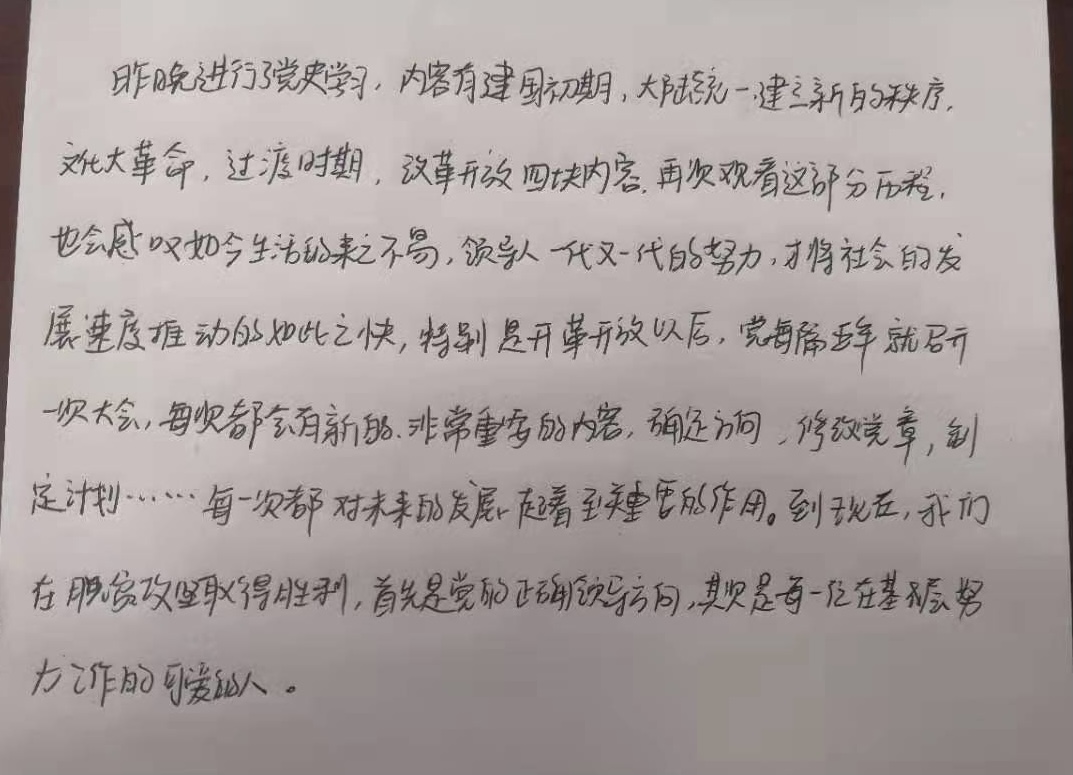 昨晚进行了党史学习，内容有建国初期，大陆统一建立新的秩序，
文化大革命，过渡时期，改革开放四块内容。再次观看这部分历程，
也会感叹如今生活的来之不易，领导人一代又一代的努力，才将社会的发
展速度推动的如此之快，特别是开革开放以后，党每隔五年就召开
一次大会，每次都会有新的、非常重要的内容，确定方向，修改党章，制
定计划……每一次都对未来的发展起着至关重要的作用。到现在，我们
在脱贫攻坚取得胜利，首先是党的正确领导方向，其次是每一位在基层努
力工作的可爱的人。